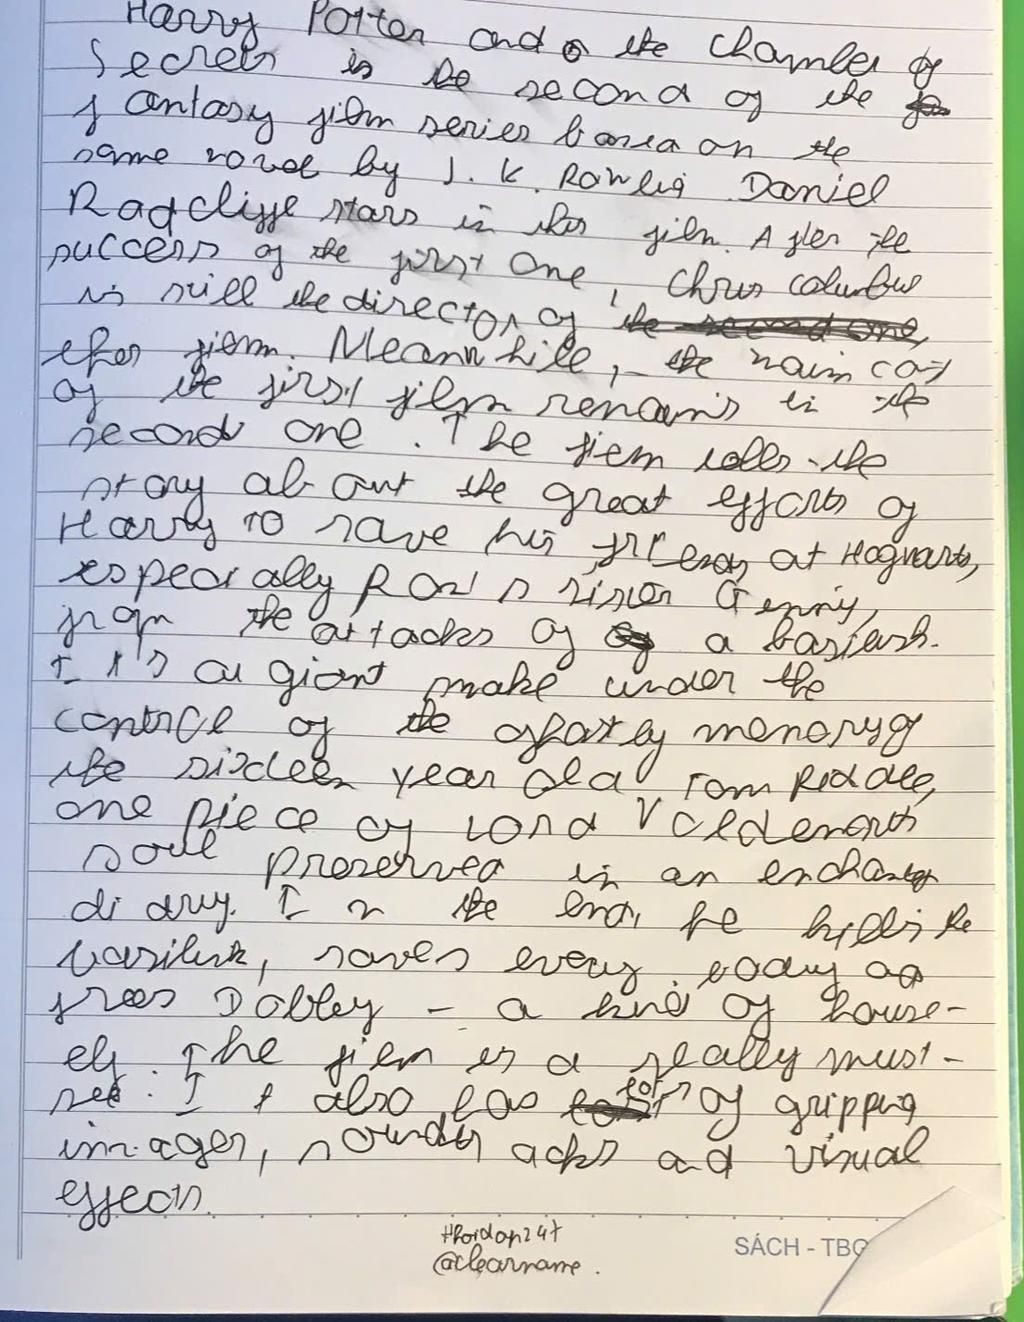 Harry Potter and the Chamber of
Secrets is the second of the
fantasy film series based on the
same novel by J. K. Rowling Daniel
Radcliffe stars in this film. After the
success of the first one, Chris columbus
is still the director of the second one,
this film. Meanwhile, the main cast
of the first film remains in the
second one. The film tells the
story about the great efforts of
Harry to save his friends at Hogwarts,
especially Ron's sister Genny,
from the attacks of a basilisk.
It's a giant snake under the
control of the ghostly memory of
the sixteen year old Tom Riddle,
one piece of Lord Voldemort's
soul preserved in an enchanted
diary. In the end, he kills the
basilisk, saves every body
frees Dobley - a kind of house-
elf. The film is a really must-
see. It also has lots of gripping
images, sounds acks and visual
effects.
#hoidap247
@clearname.
SÁCH - TB